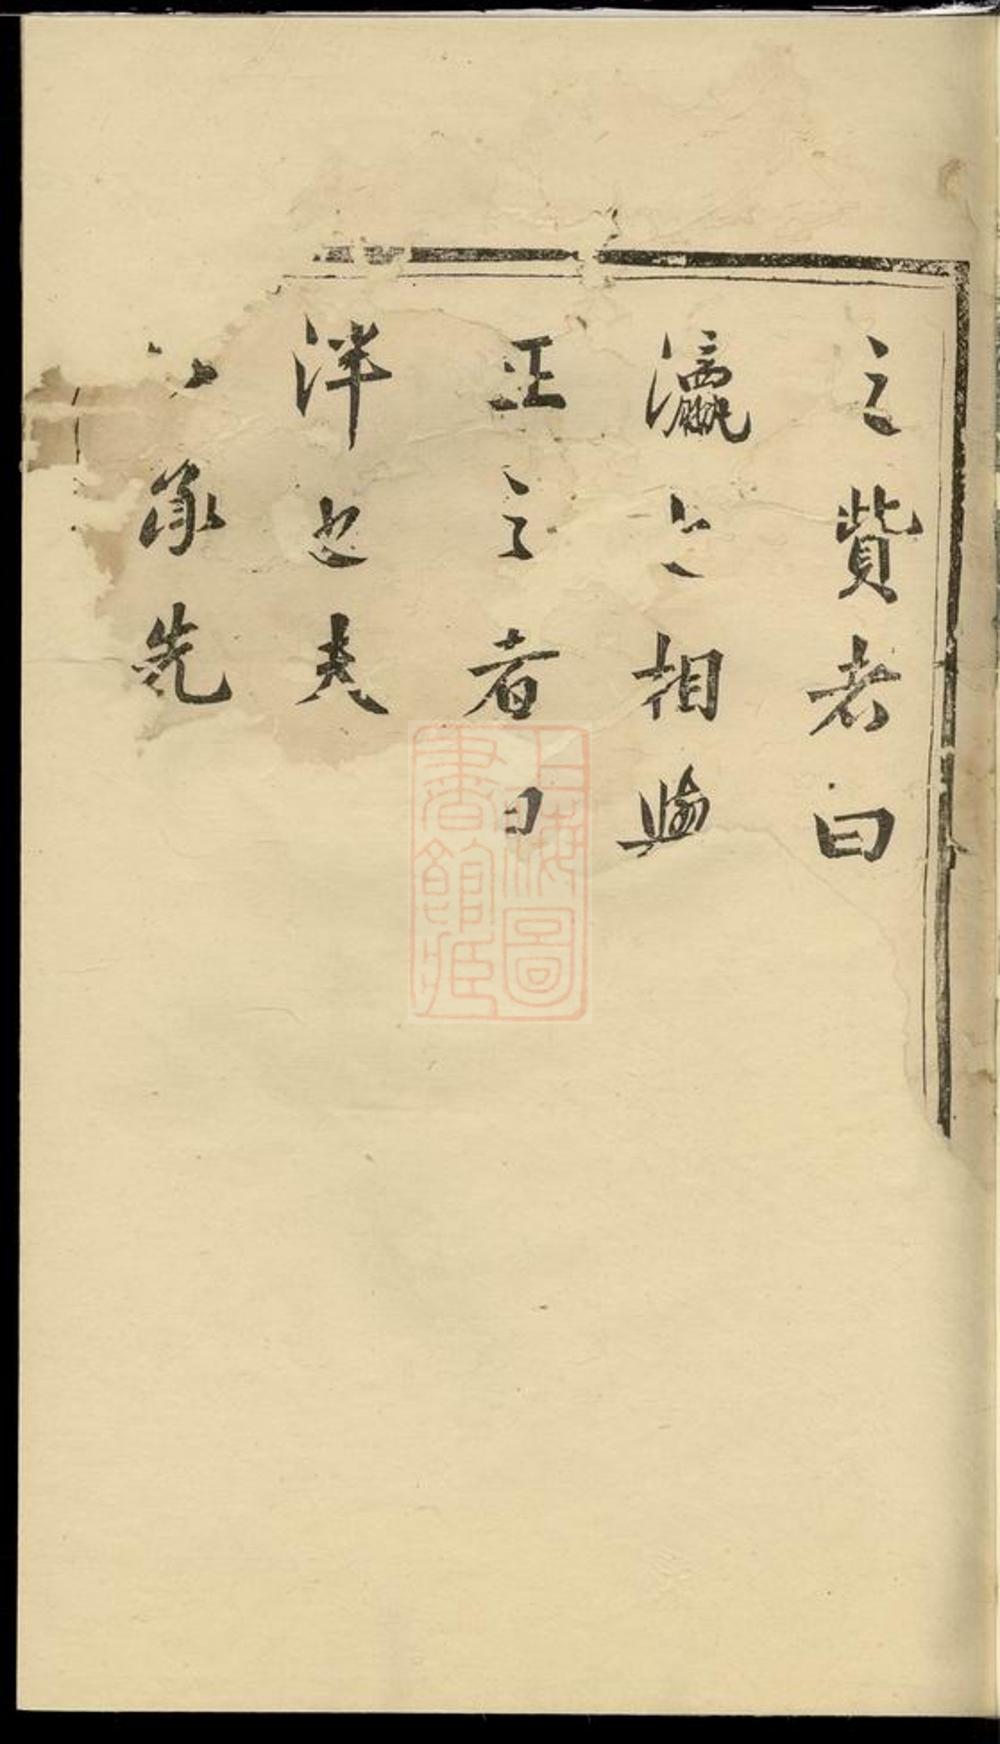 之贊者曰
瀛之相與
正之者曰
洋也夫
承先
上海圖
書館藏